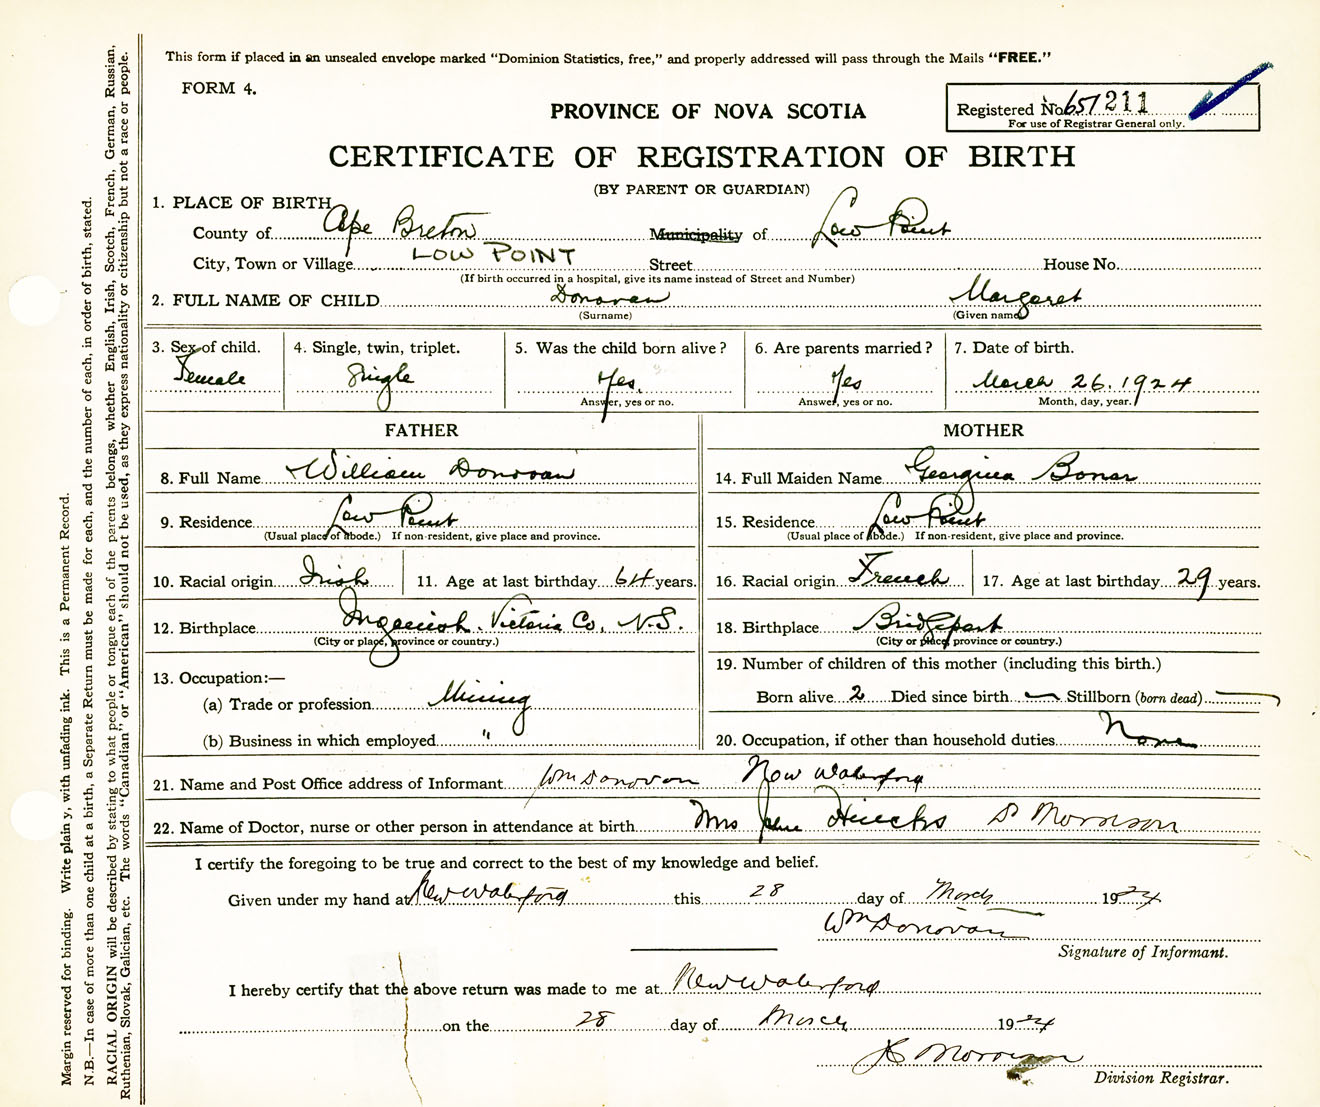 This form if placed in an unsealed envelope marked "Dominion Statistics, free," and properly addressed will pass through the Mails "FREE."
FORM 4.
Registered No. 651 211
For use of Registrar General only.
PROVINCE OF NOVA SCOTIA
CERTIFICATE OF REGISTRATION OF BIRTH
(BY PARENT OR GUARDIAN)
1. PLACE OF BIRTH
County of Cape Breton Municipality of Low Point
City, Town or Village LOW POINT Street House No.
(If birth occurred in a hospital, give its name instead of Street and Number)
2. FULL NAME OF CHILD Donovan Margaret
(Surname) (Given name)
3. Sex of child. 4. Single, twin, triplet. 5. Was the child born alive? 6. Are parents married? 7. Date of birth.
Female Single Yes. Yes March 26. 1924
Answer, yes or no. Answer, yes or no. Month, day, year.
FATHER MOTHER
8. Full Name William Donovan 14. Full Maiden Name Georgina Bonar
9. Residence Low Point 15. Residence Low Point
(Usual place of abode.) If non-resident, give place and province. (Usual place of abode.) If non-resident, give place and province.
10. Racial origin Irish 11. Age at last birthday 64 years. 16. Racial origin French 17. Age at last birthday 29 years.
12. Birthplace Ingonish. Victoria Co, N.S. 18. Birthplace Bridgeport
(City or place, province or country.) (City or place, province or country.)
13. Occupation:— 19. Number of children of this mother (including this birth.)
(a) Trade or profession Mining Born alive 2 Died since birth — Stillborn (born dead) —
(b) Business in which employed " 20. Occupation, if other than household duties None
21. Name and Post Office address of Informant Wm Donovan New Waterford
22. Name of Doctor, nurse or other person in attendance at birth Mrs John Hincks Dr Morrison
I certify the foregoing to be true and correct to the best of my knowledge and belief.
Given under my hand at New Waterford this 28 day of March 1924
Wm Donovan
Signature of Informant.
I hereby certify that the above return was made to me at New Waterford
on the 28 day of March 1924
Morrison
Division Registrar.
Margin reserved for binding. Write plain y, with unfading ink. This is a Permanent Record.
N.B.—In case of more than one child at a birth, a Separate Return must be made for each, and the number of each, in order of birth, stated.
RACIAL ORIGIN will be described by stating to what people or tongue each of the parents belongs, whether English, Irish, Scotch, French, German, Russian,
Ruthenian, Slovak, Galician, etc. The words "Canadian" or "American" should not be used, as they express nationality or citizenship but not a race or people.